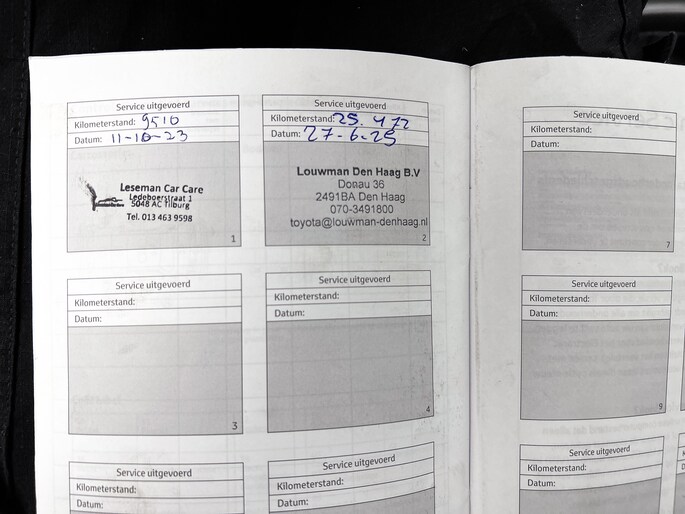 Service uitgevoerd
Kilometerstand: 9510
Datum: 11-10-23
Leseman Car Care
Ledeboerstraat 1
5048 AC Tilburg
Tel. 013 463 9598
1
Service uitgevoerd
Kilometerstand: 25.472
Datum: 27-6-25
Louwman Den Haag B.V
Donau 36
2491BA Den Haag
070-3491800
toyota@louwman-denhaag.nl
2
Service uitgevoerd
Kilometerstand:
Datum:
3
Service uitgevoerd
Kilometerstand:
Datum:
4
Service uitgevoerd
Kilometerstand:
Datum:
Service uitgevoerd
Kilometerstand:
Datum:
Service uitgevoerd
Kilometerstand:
Datum:
7
Service uitgevoerd
Kilometerstand:
Datum:
9
Service uitgevoerd
Kilometerstand:
Datum: